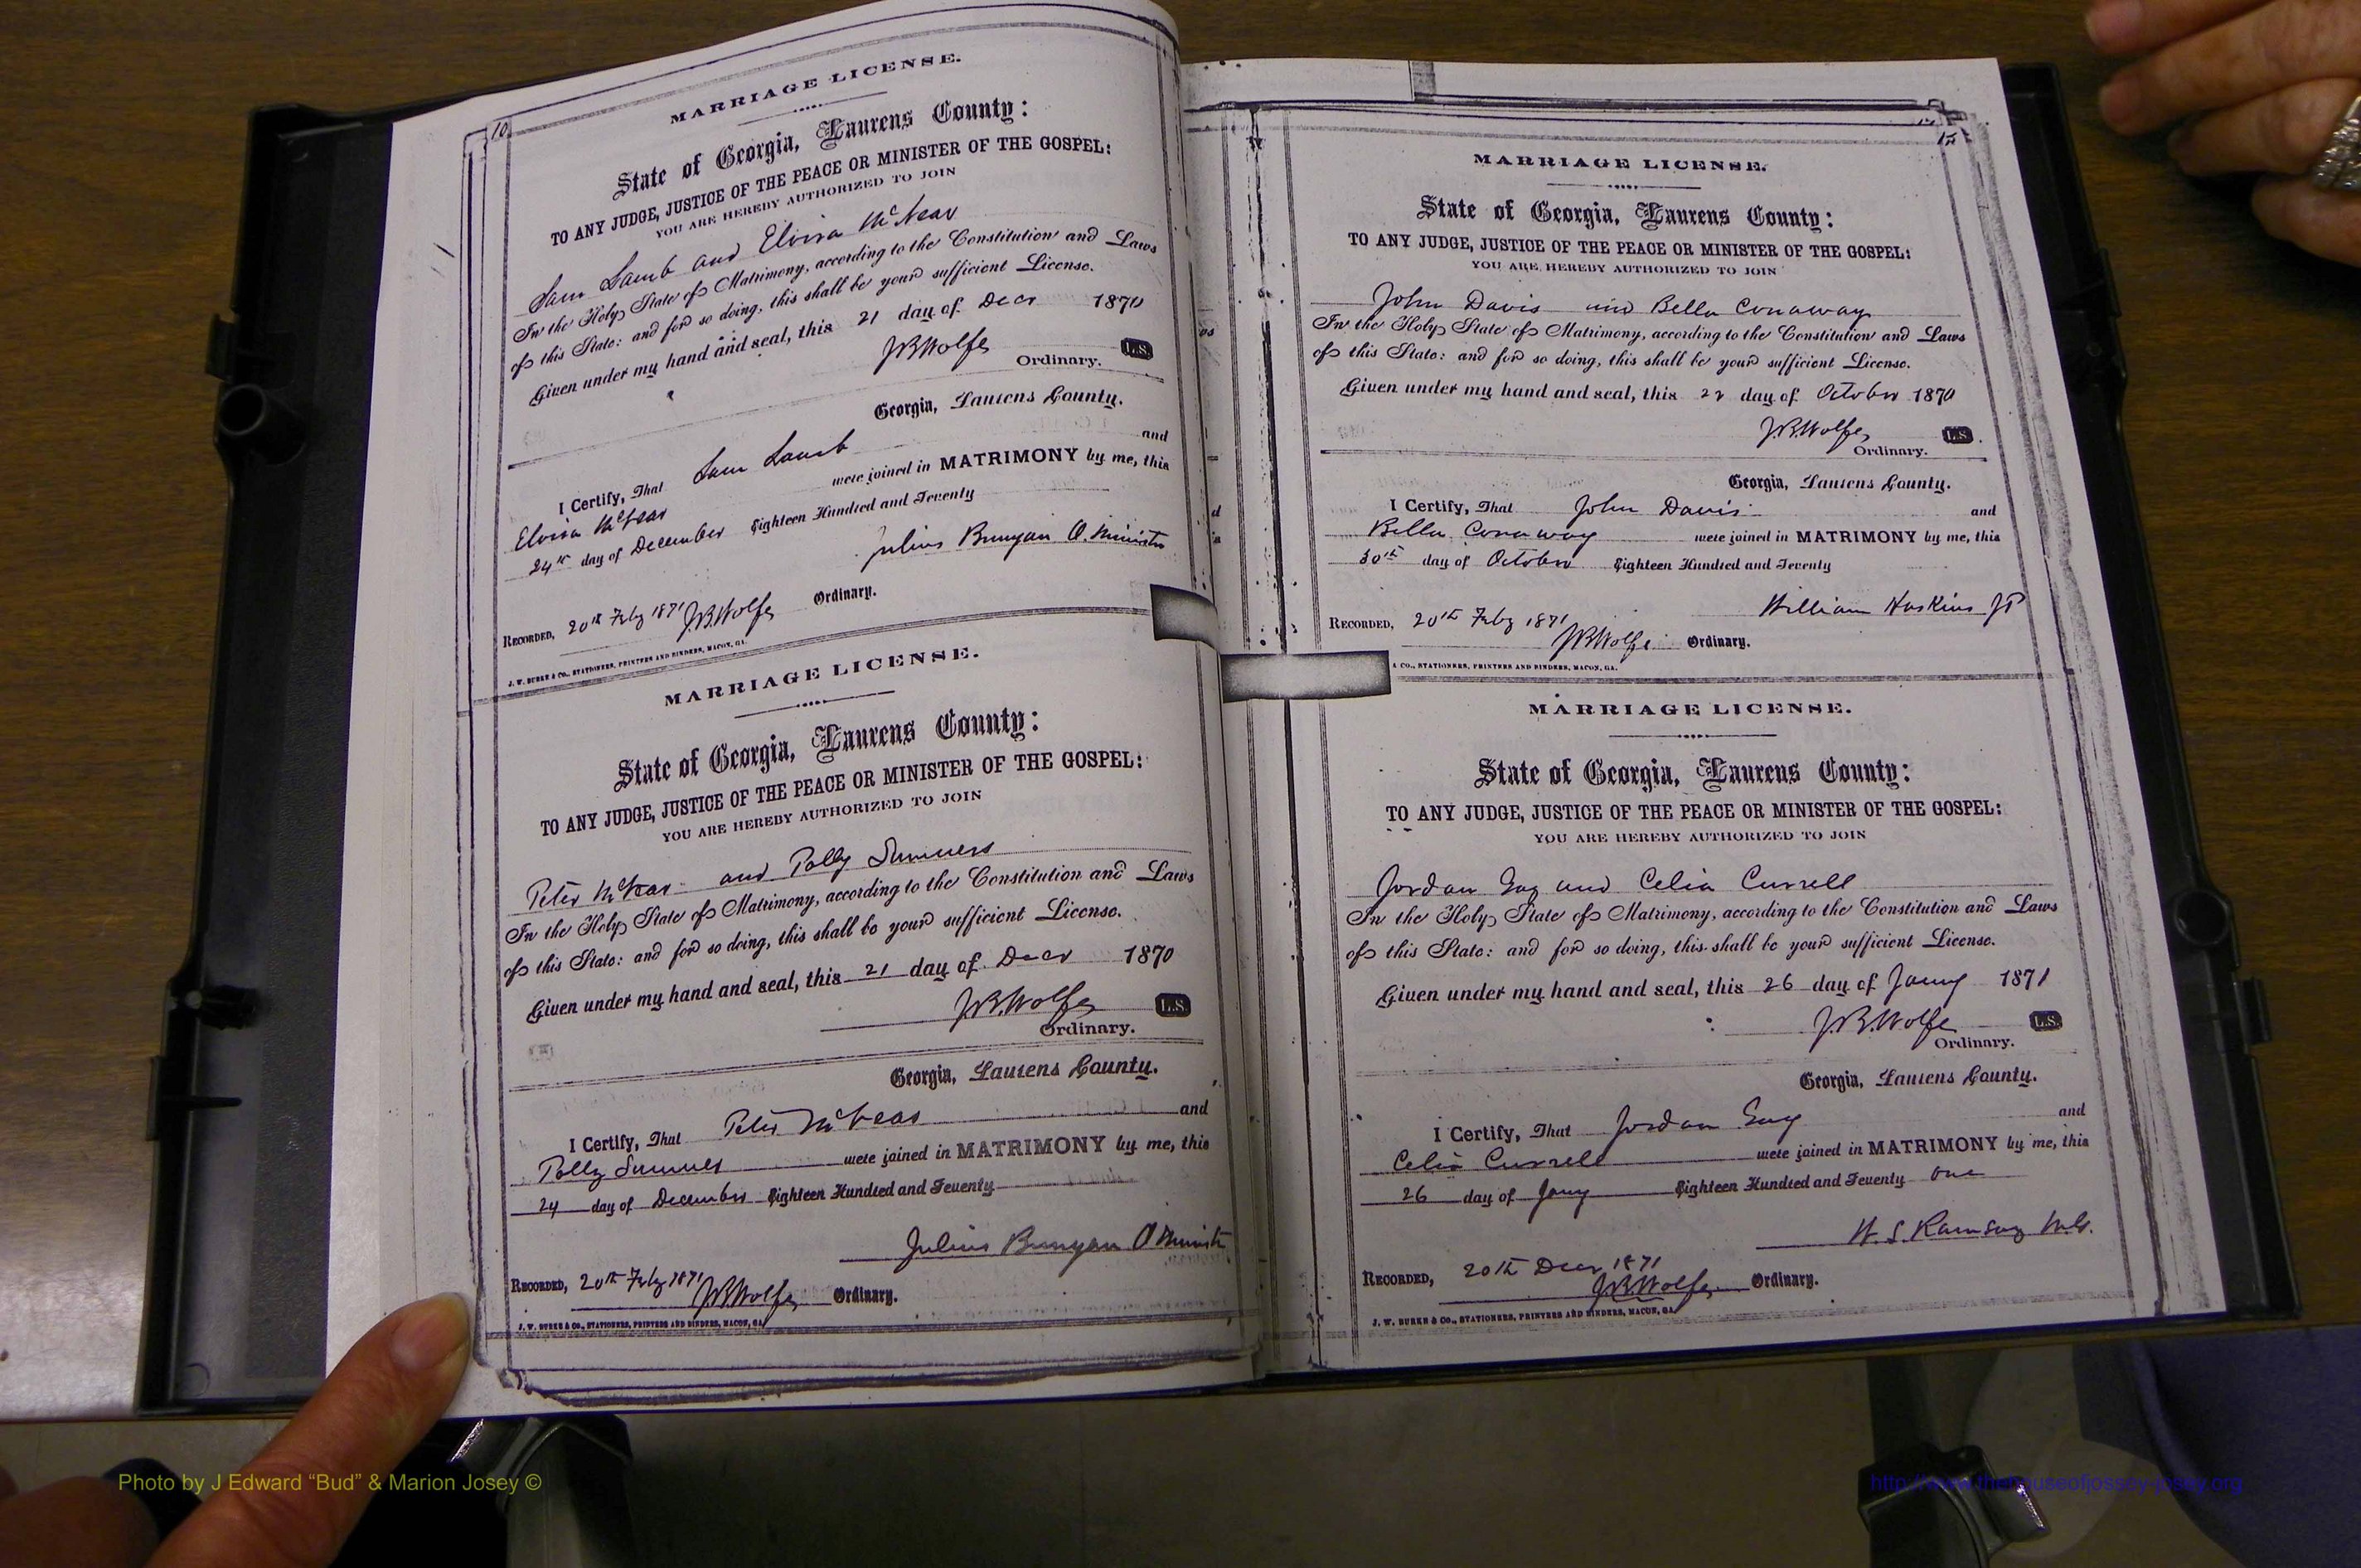 10
MARRIAGE LICENSE.
State of Georgia, Laurens County:
TO ANY JUDGE, JUSTICE OF THE PEACE OR MINISTER OF THE GOSPEL:
YOU ARE HEREBY AUTHORIZED TO JOIN
Sam Lamb and Elvira McNear
In the Holy State of Matrimony, according to the Constitution and Laws
of this State: and for so doing, this shall be your sufficient License.
Given under my hand and seal, this 21 day of Decr 1870
JBWolfe L.S.
Ordinary.
Georgia, Laurens County.
I Certify, That Sam Lamb and
Elvira were joined in MATRIMONY by me, this
24th day of December Eighteen Hundred and Seventy
Julius Bunyan O. Minister
RECORDED, 20th Feby 1871 JBWolfe Ordinary.
J. W. BURKE & CO., STATIONERS, PRINTERS AND BINDERS, MACON, GA.
MARRIAGE LICENSE.
State of Georgia, Laurens County:
TO ANY JUDGE, JUSTICE OF THE PEACE OR MINISTER OF THE GOSPEL:
YOU ARE HEREBY AUTHORIZED TO JOIN
Peter and Polly Summers
In the Holy State of Matrimony, according to the Constitution and Laws
of this State: and for so doing, this shall be your sufficient License.
Given under my hand and seal, this 21 day of Decr 1870
JBWolfe L.S.
Ordinary.
Georgia, Laurens County.
I Certify, That Peter and
Polly Summers were joined in MATRIMONY by me, this
24 day of December Eighteen Hundred and Seventy
Julius Bunyan O Ministr
RECORDED, 20th Feby 1871 JBWolfe Ordinary.
J. W. BURKE & CO., STATIONERS, PRINTERS AND BINDERS, MACON, GA.
MARRIAGE LICENSE.
State of Georgia, Laurens County:
TO ANY JUDGE, JUSTICE OF THE PEACE OR MINISTER OF THE GOSPEL:
YOU ARE HEREBY AUTHORIZED TO JOIN
John Davis and Bella Conaway
In the Holy State of Matrimony, according to the Constitution and Laws
of this State: and for so doing, this shall be your sufficient License.
Given under my hand and seal, this day of October 1870
J.B.Wolfe L.S.
Ordinary.
Georgia, Laurens County.
I Certify, That John Davis and
Bella Conaway were joined in MATRIMONY by me, this
30th day of October Eighteen Hundred and Seventy
William Haskins JP
RECORDED, 20th Feby 1871
JBWolfe Ordinary.
& CO., STATIONERS, PRINTERS AND BINDERS, MACON, GA.
MARRIAGE LICENSE.
State of Georgia, Laurens County:
TO ANY JUDGE, JUSTICE OF THE PEACE OR MINISTER OF THE GOSPEL:
YOU ARE HEREBY AUTHORIZED TO JOIN
Jordan Guy and Celia Currell
In the Holy State of Matrimony, according to the Constitution and Laws
of this State: and for so doing, this shall be your sufficient License.
Given under my hand and seal, this 26 day of Jany 1871
JBWolfe L.S.
Ordinary.
Georgia, Laurens County.
I Certify, That Jordan Guy and
Celia Currell were joined in MATRIMONY by me, this
26 day of Jany Eighteen Hundred and Seventy One
W. S. Ramsay M.G.
RECORDED, 20th Decr 1871
JBWolfe Ordinary.
J. W. BURKE & CO., STATIONERS, PRINTERS AND BINDERS, MACON, GA.
Photo by J Edward “Bud” & Marion Josey ©
http://www.thehouseofjossey-josey.org